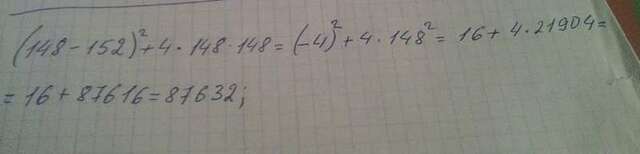 (148-152)²+4·148·148=(-4)²+4·148²=16+4·21904=
=16+87616=87632;